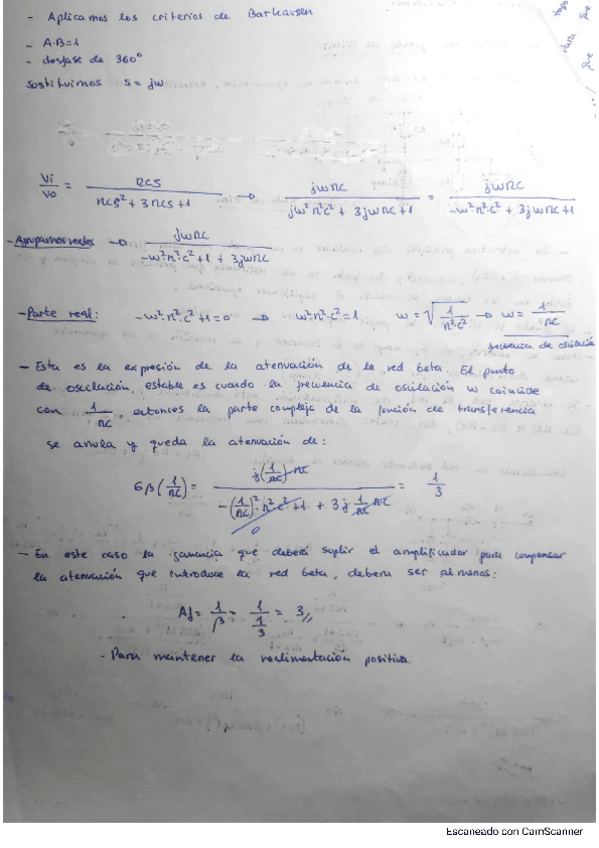 - Aplicamos los criterios de Barkausen
- A·B=1
- desfase de 360°
sustituimos s = jw
Vi/Vo = RCS / RCS² + 3RCS+1 → jwRC / jw²R²C² + 3jwRC+1 = jwRC / -w²·R²·C² + 3jwRC+1
- Agrupamos reales → jwRC / -w²R²·C²+1 + 3jwRC
- Parte real: -w²·R²·C²+1=0 → w²·R²·C²=1 w=√1/R²C² → w= 1/RC
frecuencia de oscilación
- Esta es la expresión de la atenuación de la red beta. El punto
de oscilación estable es cuando la frecuencia de oscilación w coincide
con 1/RC, entonces la parte compleja de la función de transferencia
se anula y queda la atenuación de:
Gβ(1/RC) = j(1/RC)·RC / -(1/RC)²·R²C²+1 + 3j 1/RC RC = 1/3
0
- En este caso la ganancia que deberá suplir el amplificador para compensar
la atenuación que introduce la red beta, debera ser al menos:
Af = 1/β = 1/1/3 = 3//
- Para mantener la realimentación positiva.
Escaneado con CamScanner